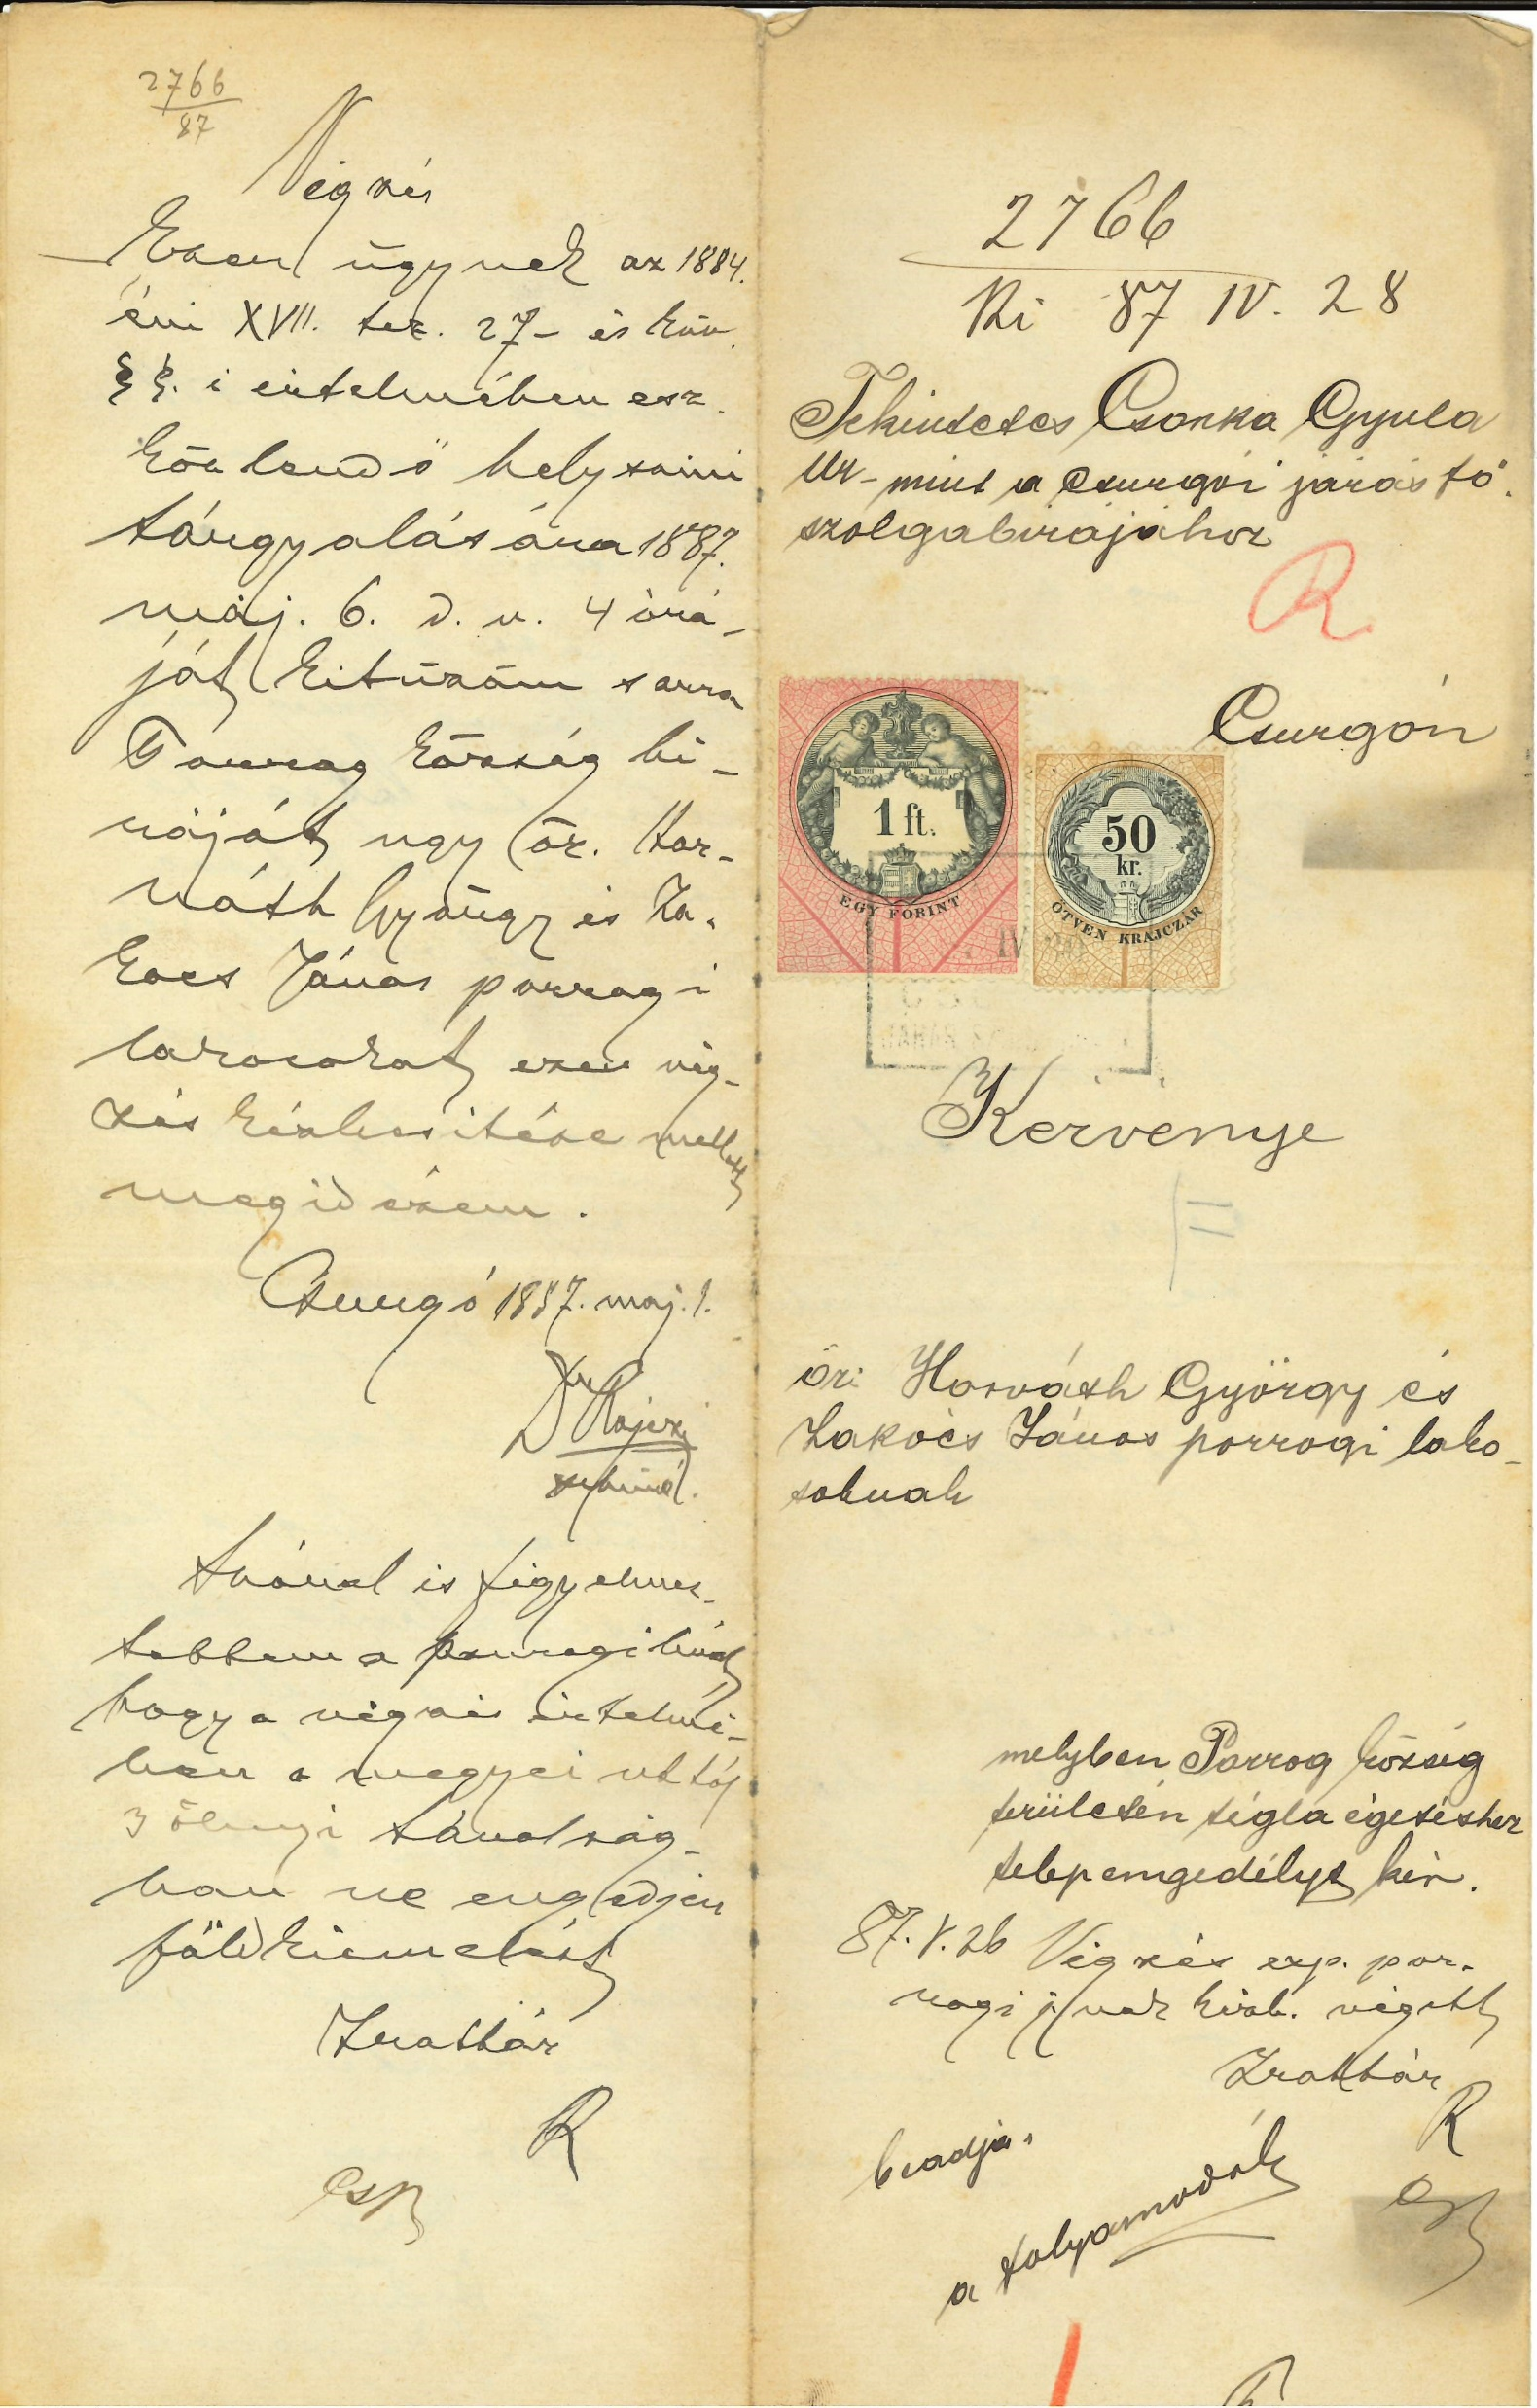 2766
87
Végzés
Ezen ügynek az 1884.
évi XVII. tcz. 27- és köv.
§§. i értelmében esz-
közlendő helyszini
tárgyalására 1887.
máj. 6. d. u. 4 órá-
ját kitűzöm s arra
Porrog község bi-
ráját ugy ör. Hor-
váth György és La-
kocs János porrogi
lakosokat ezen vég-
zés kézbesitése mellett
megidézem.
Csurgó 1887. maj. 1.
Szóval is figyelmez-
tettem a porrogi birót
hogy a végzés értelmé-
ben a megyei uttól
3 ölnyi távolság-
ban ne engedjen
föld kiemelést
Irattár
R
2766
Ki 87 IV. 28
Tekintetes Csonka Gyula
Ur- mint a csurgói járás fő-
szolgabirájához
R
Csurgón
1 ft.
EGY FORINT
50
kr.
ÖTVEN KRAJCZÁR
IV
Kérvénye
öri Horváth György és
Lakócs János porrogi lako-
soknak
melyben Porrog község
területén tégla égetéshez
telepengedélyt kér.
87. V. 26 Végzés exp. por-
rogi j/nak kézb. végett
Irattár
R
beadja.
a folyamodók